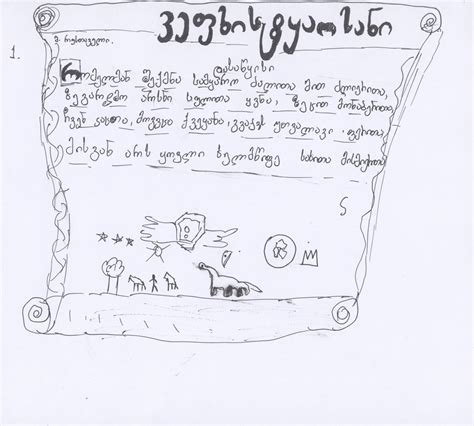 ვეფხისტყაოსანი
1.
შ. რუსთაველი.
დასაწყისი
რომელმან შექმნა სამყარო ძალითა მით ძლიერითა,
ზეგარდმო არსნი სულითა ყვნა, ზეცით მონაბერითა,
ჩვენ კაცთა, მოგვცა ქვეყანა, გვაქვს უთვალავი ფერითა,
მისგან არს ყოველი ხელმწიფე სახითა მისმიერითა